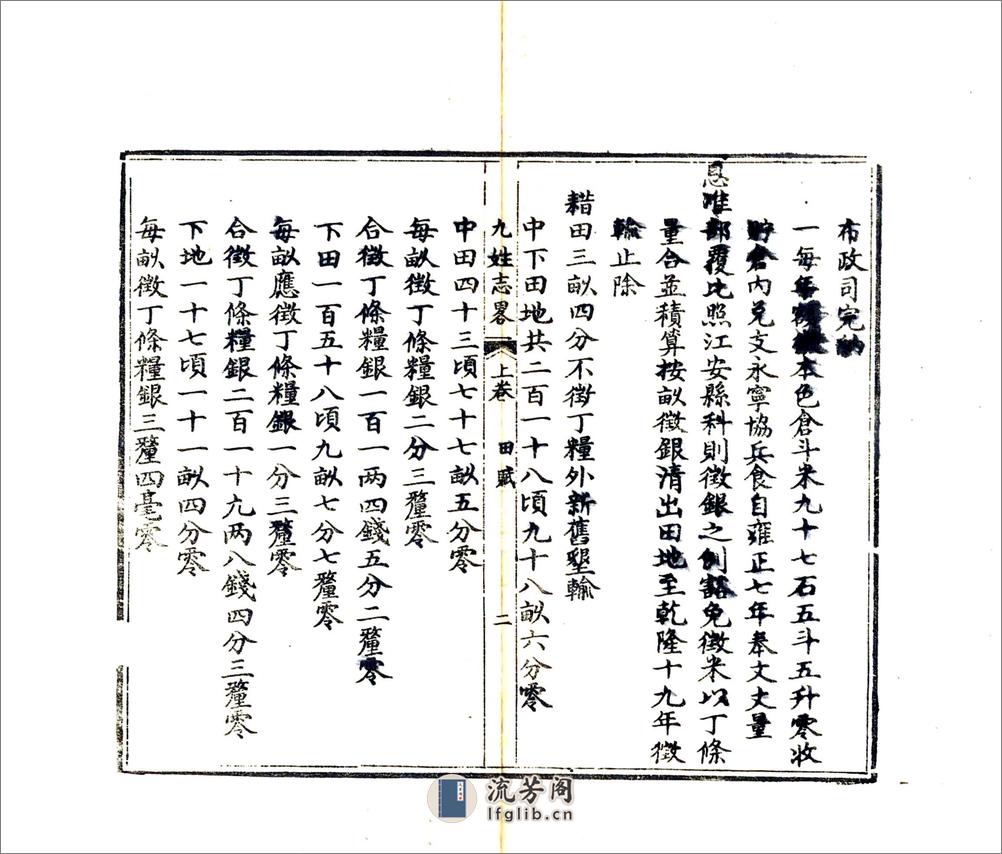 布政司完納
一每年額徵本色倉斗米九十七石五斗五升零收
貯倉內兌支永寧協兵食自雍正七年奉文丈量
恩准部覆比照江安縣科則徵銀之例豁免徵米以丁條
量合孟積算按畝徵銀清出田地至乾隆十九年徵
輸止除
耤田三畝四分不徵丁糧外新舊墾輸
中下田地共二百一十八頃九十八畝六分零
九姓志畧 上卷 田賦 二
中田四十三頃七十七畝五分零
每畝徵丁條糧銀二分三釐零
合徵丁條糧銀一百一两四錢五分二釐零
下田一百五十八頃九畝七分七釐零
每畝應徵丁條糧銀一分三釐零
合徵丁條糧銀二百一十九两八錢四分三釐零
下地一十七頃一十一畝四分零
每畝徵丁條糧銀三釐四毫零
流芳阁
lfglib.cn